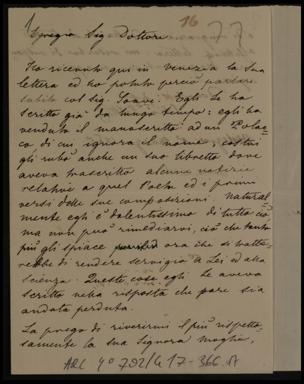 16
Egregio Sig. Dottore
Ho ricevuto qui in Venezia la sua
lettera ed ho potuto perciò parlare
subito col sig. Soave. Egli Le ha
scritto già da lungo tempo: egli ha
venduto il manoscritto ad un Polac-
co di cui ignora il nome; costui
gli rubò anche un suo libretto dove
aveva trascritto alcune notizie
relative a quel poeta ed i primi
versi delle sue composizioni. Natural
mente egli è dolentissimo di tutto ciò,
ma non può rimediarvi, ciò che tanto
più gli spiace ora che si tratte-
rebbe di rendere servigio a Lei ed alla
scienza. Queste cose egli Le aveva
scritto nella risposta che pare sia
andata perduta.
La prego di riverirmi il più rispetto-
samente la sua Signora moglie,
ARC 4º 792/G 17-366.A